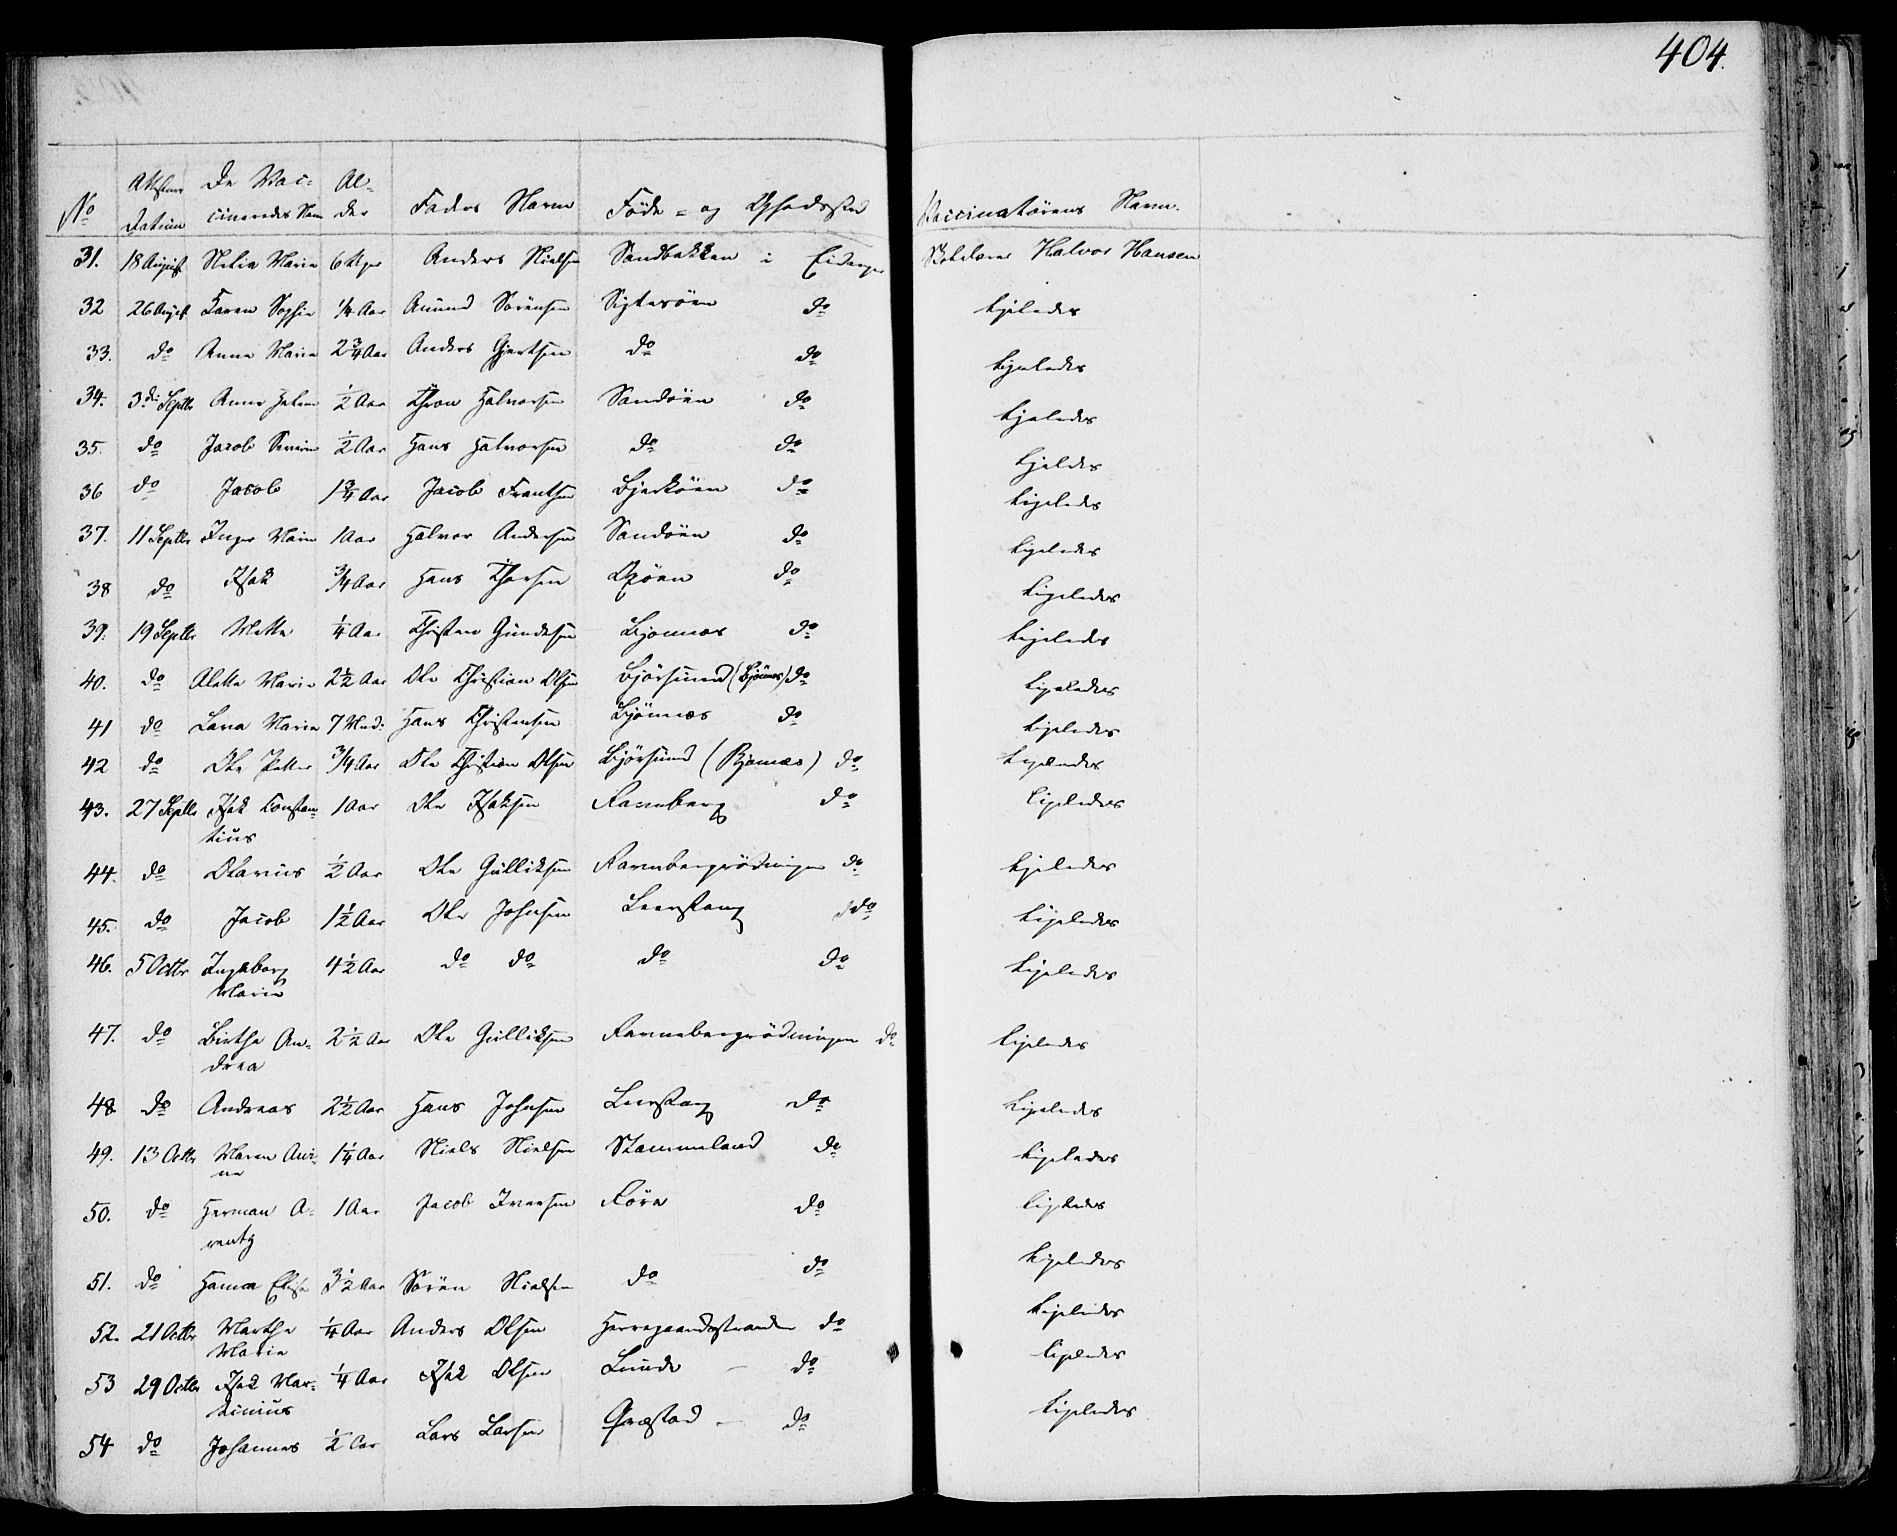 404.
No Attestens Datum De Vaccineredes Navn Alder Faders Navn Föde- og Opholdssted Vaccinatörens Navn.
31. 18 August Maria 6 Uger Anders Nielsen Sandbakken i Eidanger Halvor Hansen
32 26 August Karen Sophie 1/4 Aar Amund Sörensen Sigtesöen do ligeledes
33. do Anne Maria 2 3/4 Aar Anders Gjertsen do do ligeledes
34. 3die Septbr Anne Helene 1/2 Aar Thron Halvorsen Sandöen do ligeledes
35. do Jacob Severin 1/2 Aar Hans Halvorsen do do ligeledes
36 do Jacob 1 3/4 Aar Jacob Frantsen Bjerköen do ligeledes
37. 11 Septbr Inger Marie 1 Aar Halvor Andersen Sandöen do ligeledes
38 do Isak 3/4 Aar Hans Thorsen Oxöen do ligeledes
39. 19 Septbr Mette 1/4 Aar Christen Gundesen Bjonnes do ligeledes
40. do Alette Marie 2 1/2 Aar Ole Christian Olsen Björsund (Bjönnes) do ligeledes
41 do Lava Marie 7 Mnd: Hans Christensen Bjönnes do ligeledes
42 do Ole Petter 3/4 Aar Ole Christian Olsen Björsund (Bjonnes) do ligeledes
43. 27 Septbr Isak Constan- 1 Aar Ole Isaksen Ravneberg do ligeledes
tius
44. do Olavus 1/2 Aar Ole Gulliksen Ravnebergrödningen do ligeledes
45. do Jacob 1 1/2 Aar Ole Johnsen Leerstang do ligeledes
46. 5 Octbr Ingeborg 4 1/2 Aar do do do do ligeledes
Marie
47. do Birthe An- 2 1/2 Aar Ole Gulliksen Ravnebergrödningen do ligeledes
drea
48 do Andreas 2 1/2 Aar Hans Johnsen Leerstang do ligeledes
49. 13 Octbr Maren Ani- 1 1/4 Aar Niels Nielsen Stammeland do ligeledes
ne
50. do Herman A- 1 Aar Jacob Iversen Röra do ligeledes
rentz
51. do Hanna Elise 3 1/2 Aar Sören Nielsen do do ligeledes
52. 21 Octbr Marthe 1/4 Aar Anders Olsen Herregaardsstranden do ligeledes
Marie
53 29 Octbr Isak Mar- 1/4 Aar Isak Olsen Lunde - do ligeledes
tinius
54 do Johannes 1/2 Aar Lars Larsen Græstad - do ligeledes